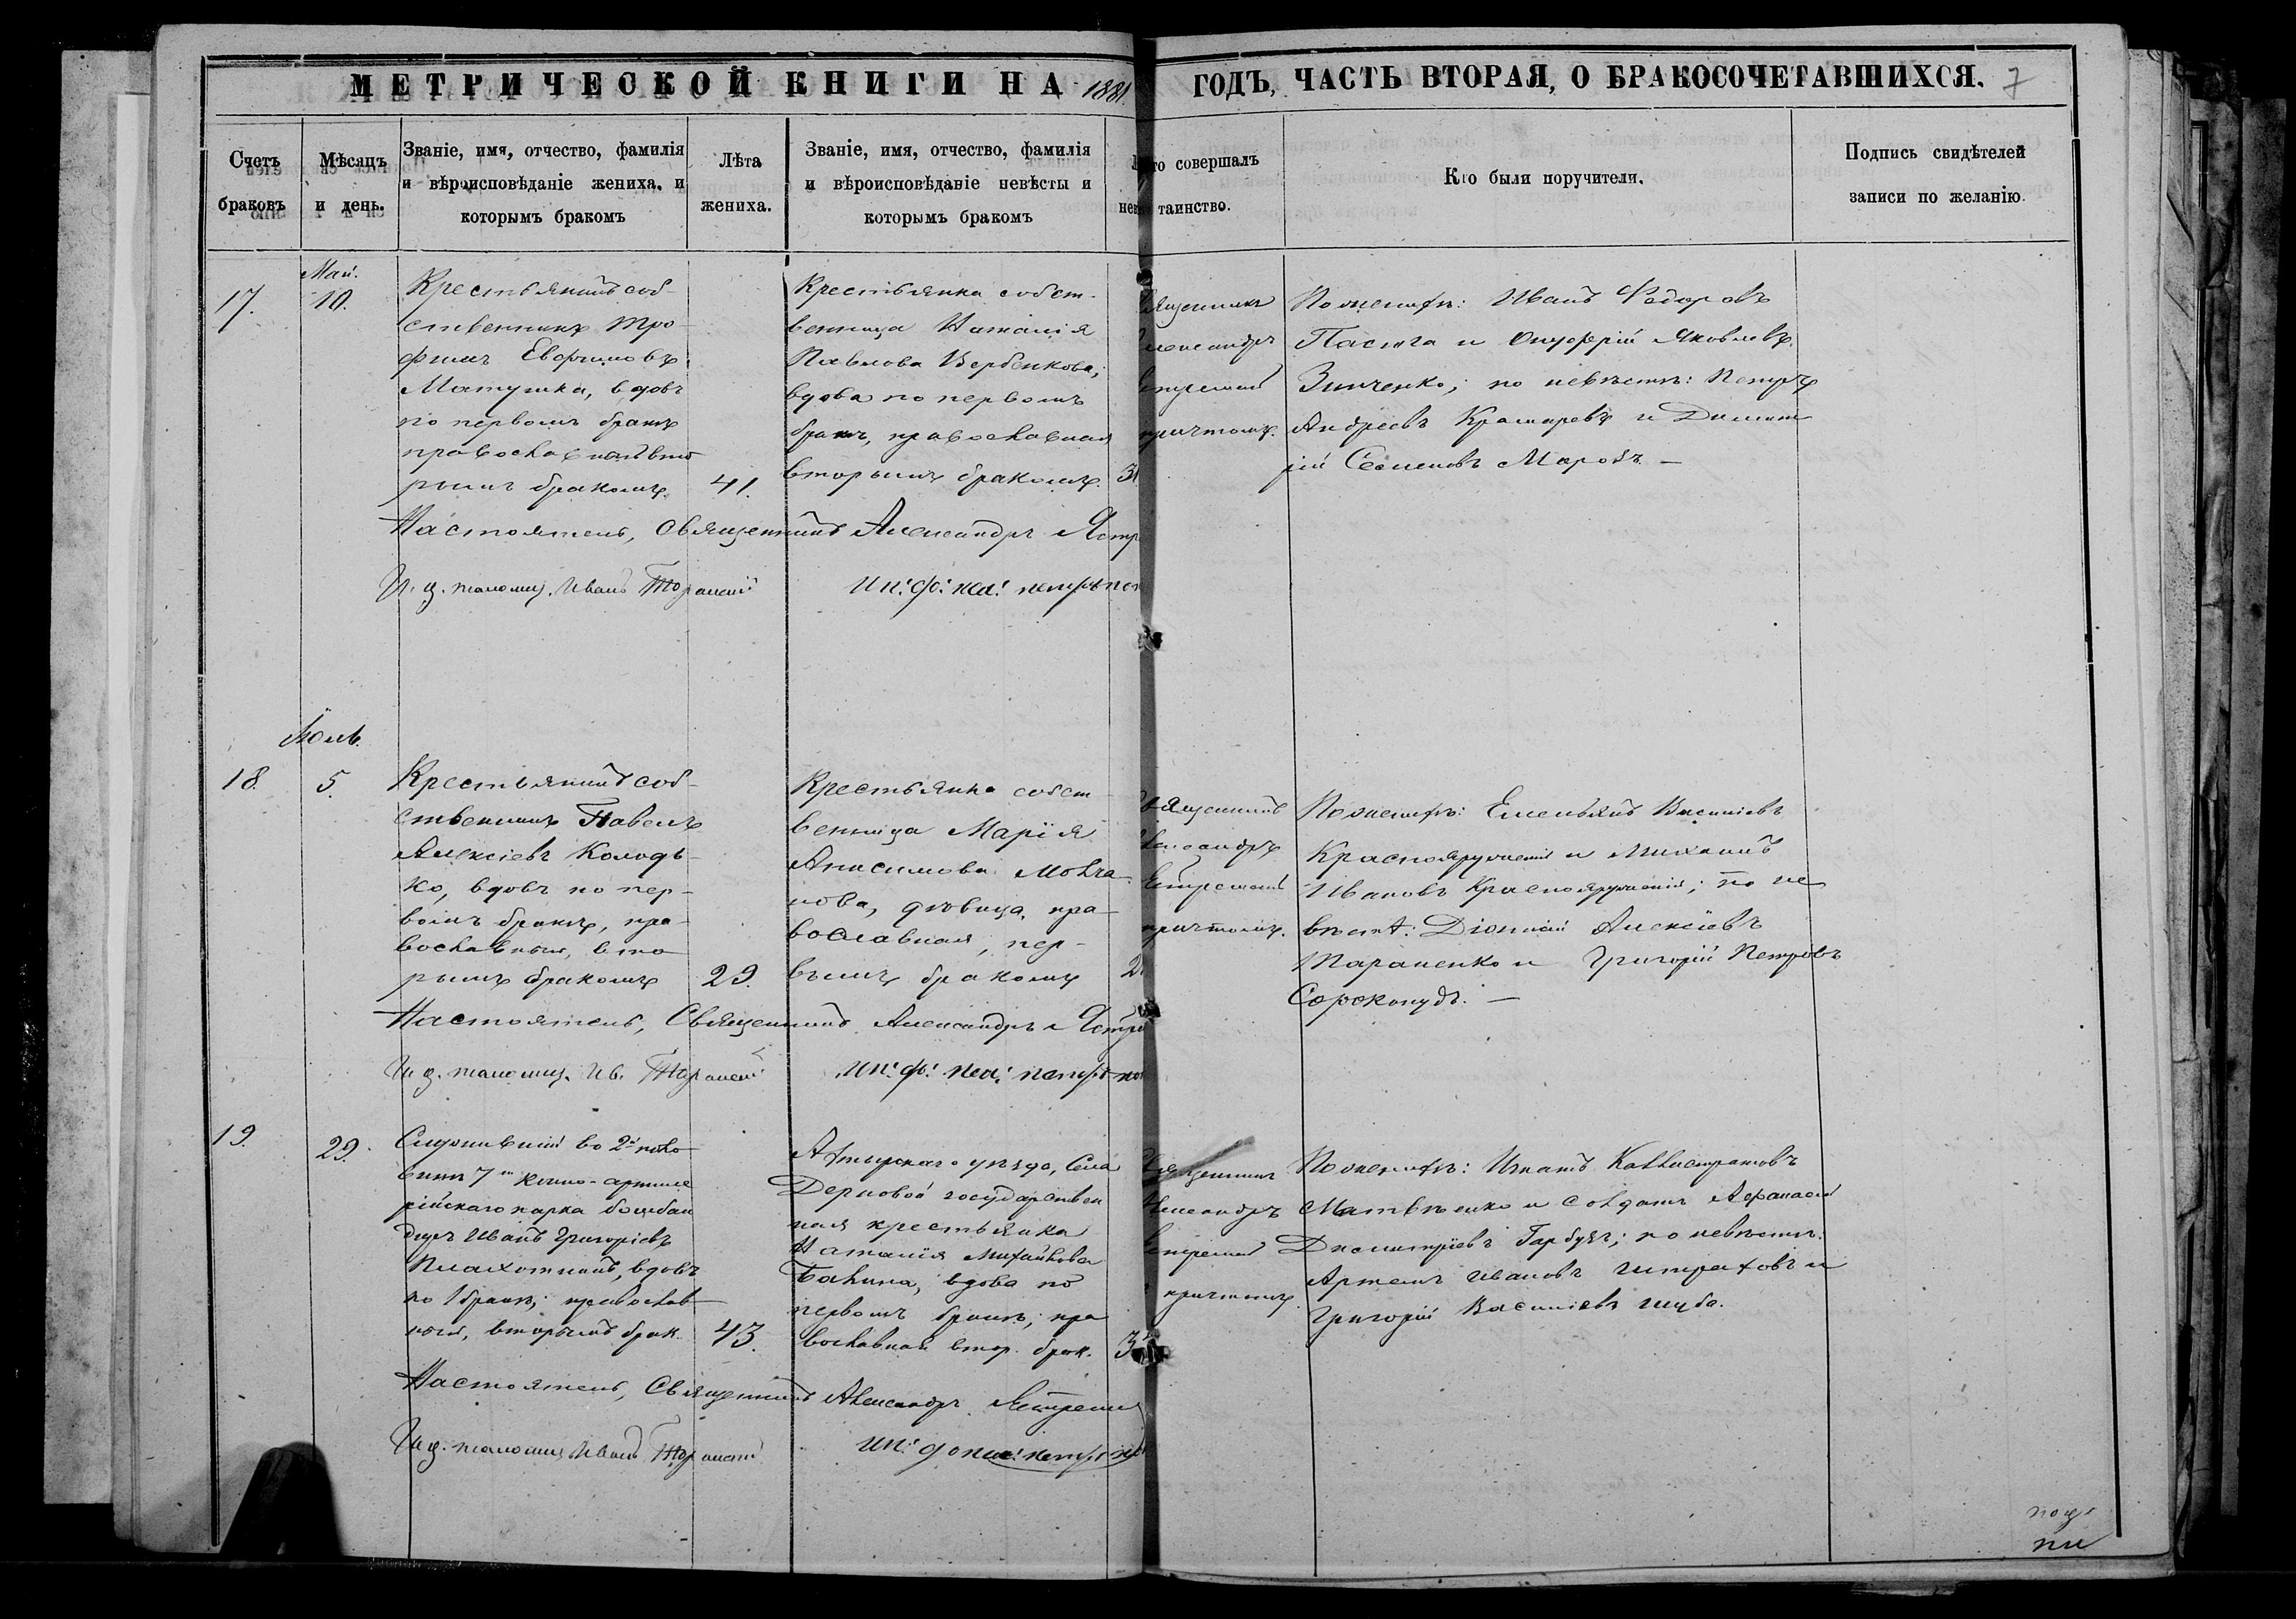 МЕТРИЧЕСКОЙ КНИГИ НА 1881
ГОДЪ, ЧАСТЬ ВТОРАЯ, О БРАКОСОЧЕТАВШИХСЯ. 7
Счетъ
браковъ
Мѣсяцъ
и день.
Званіе, имя, отчество, фамилія
и вѣроисповѣданіе жениха, и
которымъ бракомъ
Лѣта
жениха.
Званіе, имя, отчество, фамилія
и вѣроисповѣданіе невѣсты и
которымъ бракомъ
совершалъ
таинство.
Кто были поручители.
Подпись свидѣтелей
записи по желанію
17.
Май.
10.
Крестьянинъ соб-
ственникъ Тро
фимъ Евфимовъ
Матушка, вдовъ
по первомъ бракѣ
православный вто
рымъ бракомъ.
41.
Крестьянка собст-
венница Наталія
Павлова Вербенкова;
вдова по первомъ
бракѣ, православная
вторымъ бракомъ.
причтомъ.
По женихѣ: Иванъ Федоровъ
Пастга и Онуфрій Яковлевъ
Зинченко; по невѣстѣ: Петръ
Андреевъ Крамаревъ и Димит
рій Семеновъ Маровъ. —
Настоятель, Священникъ Александръ
И. д. псаломщ. Иванъ
18.
Іюль.
5.
Крестьянинъ соб-
ственникъ Павелъ
Алексіевъ Колодь-
ко, вдовъ по пер-
вомъ бракѣ, пра-
вославный, вто
рымъ бракомъ
29.
Крестьянка собст
венница Марія
Анисимова Молча
нова, дѣвица, пра-
вославная, пер-
вымъ бракомъ
причтомъ.
По женихѣ: Емельянъ Василіевъ
Краснояружскій и Михаилъ
Ивановъ Краснояружскій; по не
вѣстѣ: Діонисій Алексіевъ
Тараненко и Григорій Петровъ
Сорокопудъ. —
Настоятель, Священникъ Александръ
И. д. псаломщ. Ив.
19.
29.
Служившій во 2й поло
винѣ 7го конно-артилле
рійскаго парка бомбан
диръ Иванъ Григоріевъ
Плахотникъ, вдовъ
по 1 бракѣ; православ
ный, вторымъ брак.
43.
Ахтырскаго уѣзда, Села
Дерновой государствен
ная крестьянка
Наталія Михайлова
Бакина, вдова по
первомъ бракѣ; пра
вославная втор. брак.
причтомъ.
По женихѣ: Игнатъ Каллистратовъ
Матвѣенко и солдатъ Афанасій
Димитріевъ Гарбузъ; по невѣстѣ:
Артемъ Ивановъ Штраховъ и
Григорій Василіевъ Шуба.
Настоятель, Священникъ Александръ
И. д. псаломщ. Иванъ